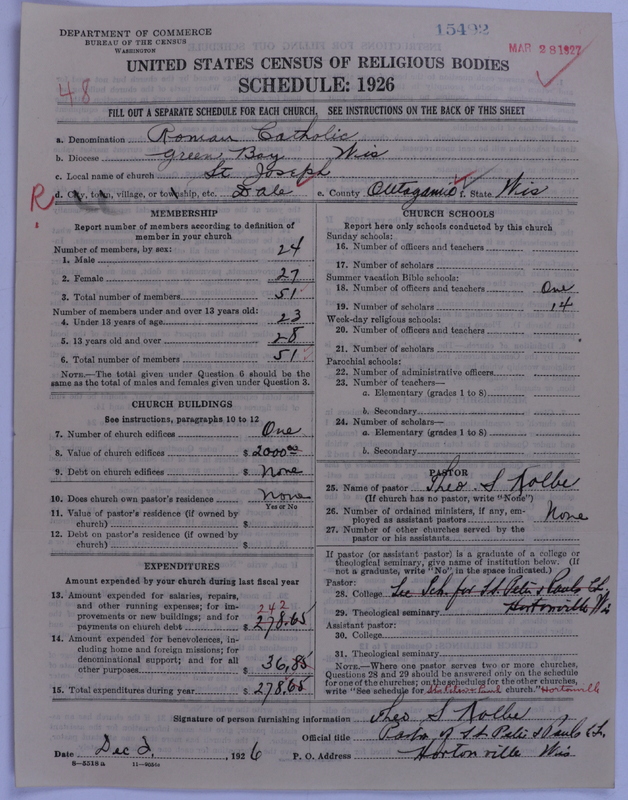 DEPARTMENT OF COMMERCE
BUREAU OF THE CENSUS
WASHINGTON
15492
MAR 28 1927
UNITED STATES CENSUS OF RELIGIOUS BODIES
SCHEDULE: 1926
48
FILL OUT A SEPARATE SCHEDULE FOR EACH CHURCH, SEE INSTRUCTIONS ON THE BACK OF THIS SHEET
a. Denomination Roman Catholic
b. Diocese Green Bay Wis
c. Local name of church St Joseph
R
d. City, town, village, or township, etc. Dale e. County Outagamie f. State Wis
MEMBERSHIP
Report number of members according to definition of
member in your church
Number of members, by sex:
1. Male 24
2. Female 27
3. Total number of members 51
Number of members under and over 13 years old:
4. Under 13 years of age 23
5. 13 years old and over 28
6. Total number of members 51
NOTE.—The total given under Question 6 should be the
same as the total of males and females given under Question 3.
CHURCH BUILDINGS
See instructions, paragraphs 10 to 12
7. Number of church edifices One
8. Value of church edifices $ 2000.00
9. Debt on church edifices $ None
10. Does church own pastor's residence None
Yes or No
11. Value of pastor's residence (if owned by
church) $
12. Debt on pastor's residence (if owned by
church) $
EXPENDITURES
Amount expended by your church during last fiscal year
13. Amount expended for salaries, repairs,
and other running expenses; for im-
provements or new buildings; and for
payments on church debt $ 278.65
242
14. Amount expended for benevolences, in-
cluding home and foreign missions; for
denominational support; and for all
other purposes $ 36,85
15. Total expenditures during year $ 278.65
CHURCH SCHOOLS
Report here only schools conducted by this church
Sunday schools:
16. Number of officers and teachers
17. Number of scholars
Summer vacation Bible schools:
18. Number of officers and teachers One
19. Number of scholars 14
Week-day religious schools:
20. Number of officers and teachers
21. Number of scholars
Parochial schools:
22. Number of administrative officers
23. Number of teachers—
a. Elementary (grades 1 to 8)
b. Secondary
24. Number of scholars—
a. Elementary (grades 1 to 8)
b. Secondary
PASTOR
25. Name of pastor Theo S Kolbe
(If church has no pastor, write "None")
26. Number of ordained ministers, if any, em-
ployed as assistant pastors None
27. Number of other churches served by the
pastor or his assistants
If pastor (or assistant pastor) is a graduate of a college or
theological seminary, give name of institution below. (If
not a graduate, write "No" in the space indicated.)
Pastor:
28. College See Sch. for St. Peter & Pauls Ch.
29. Theological seminary Hortonville Wis
Assistant pastor:
30. College
31. Theological seminary
NOTE.—Where one pastor serves two or more churches,
Questions 28 and 29 should be answered only on the schedule
for one of the churches; on the schedules for the other churches,
write "See schedule for Sts Peter & Paul church." Hortonville
Signature of person furnishing information Theo S Kolbe
Official title Pastor of St Peter & Pauls Ch.
Date Dec 2, 1926 P. O. Address Hortonville Wis
8—5518 a 11—9651a